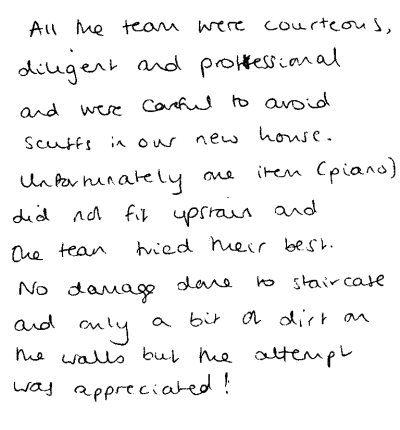 All the team were courteous,
diligent and professional
and were careful to avoid
scuffs in our new house.
Unfortunately one item (piano)
did not fit upstairs and
the team tried their best.
No damage done to staircase
and only a bit of dirt on
the walls but the attempt
was appreciated!